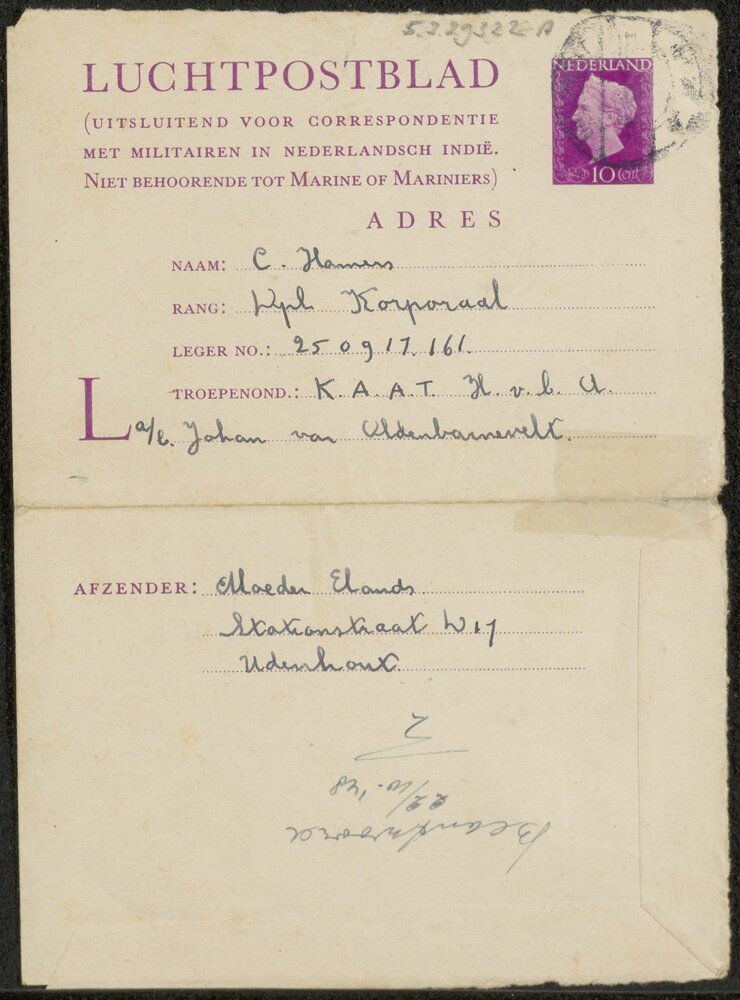 5.3.29322-A
LUCHTPOSTBLAD
NEDERLAND
10 Cent
(UITSLUITEND VOOR CORRESPONDENTIE
MET MILITAIREN IN NEDERLANDSCH INDIË.
NIET BEHOORENDE TOT MARINE OF MARINIERS)
ADRES
NAAM: C. Hamers
RANG: Wpl Korporaal
LEGER NO.: 25 09 17. 161.
TROEPENOND.: K.A.A.T. H.v.b. A.
L a/b. Johan van Oldenbarnevelt.
AFZENDER: Moeder Elands
Stationstraat W 17
Udenhout
Beantwoord
22/10-'48